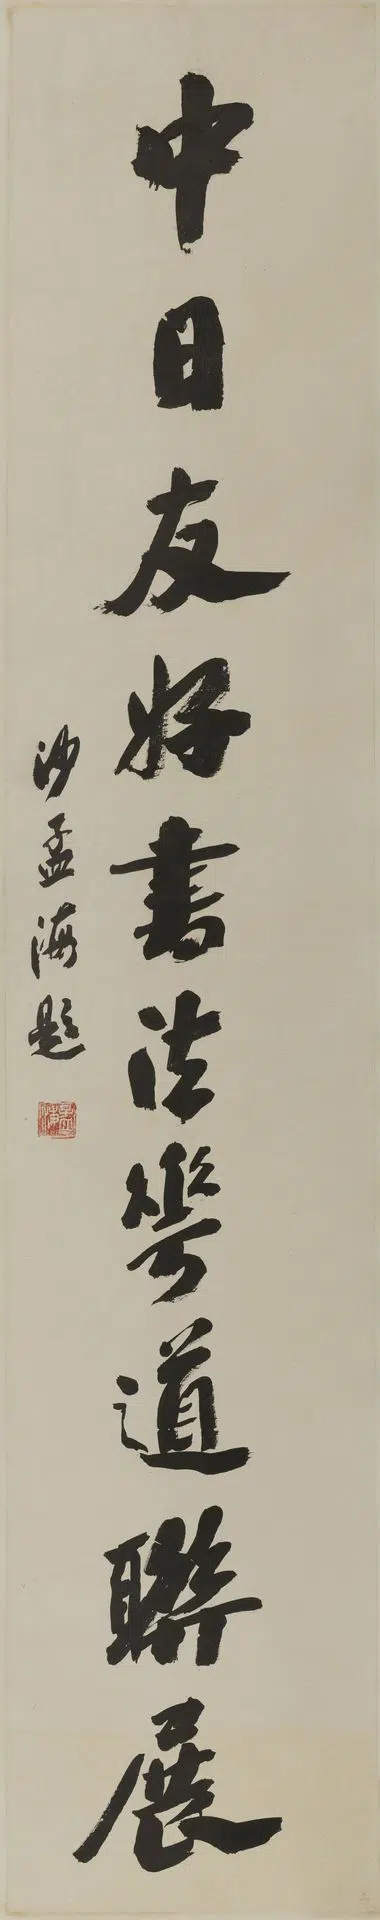 中日友好書法道聯展
沙孟海題